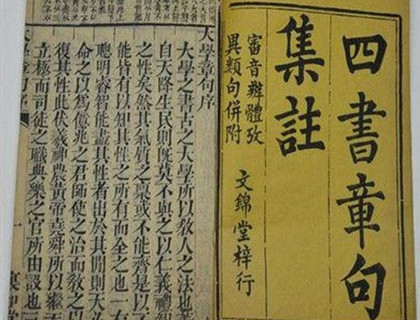 四書章句
集註
審音辨體攷
異類句併附
文錦堂梓行
大學章句序
大學之書古之大學所以教人之法也蓋
自天降生民則既莫不與之以仁義禮智
之性矣然其氣質之稟或不能齊是以不
能皆有以知其性之所有而全之也一有
聰明睿智能盡其性者出於其間則天必
命之以爲億兆之君師使之治而教之以
復其性此伏羲神農黃帝堯舜所以繼天
立極而司徒之職典樂之官所由設也三